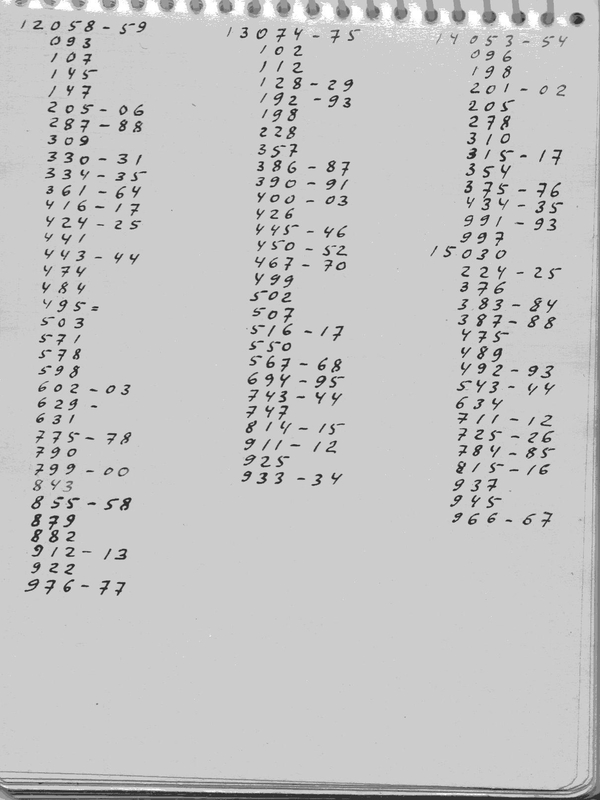 12058-59
093
107
145
147
205-06
287-88
309
330-31
334-35
361-64
416-17
424-25
441
443-44
474
484
495=
503
571
578
598
602-03
629-
631
775-78
790
799-00
843
855-58
879
882
912-13
922
976-77
13074-75
102
112
128-29
192-93
198
228
357
386-87
390-91
400-03
426
445-46
450-52
467-70
499
502
507
516-17
550
567-68
694-95
743-44
747
814-15
911-12
925
933-34
14053-54
096
198
201-02
205
278
310
315-17
354
375-76
434-35
991-93
997
15030
224-25
376
383-84
387-88
475
489
492-93
543-44
634
711-12
725-26
784-85
815-16
937
945
966-67